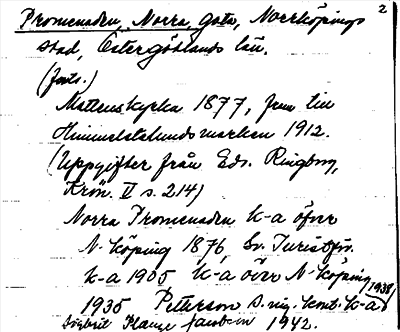 2
Promenaden, Norra, gata, Norrköpings
stad, Östergötlands län.
(forts.)
Matteuskyrka 1877, fram till
Himmelstalundsvarken 1912.
(Uppgifter från Edv. Ringborg,
Krön. II s. 214)
Norra Promenaden k-a över
N-köping 1876, Sv. Turistför.
k-a 1905, k-a över N-köping
1938,
1935 Peterson s. nig. komb. k-a
1942